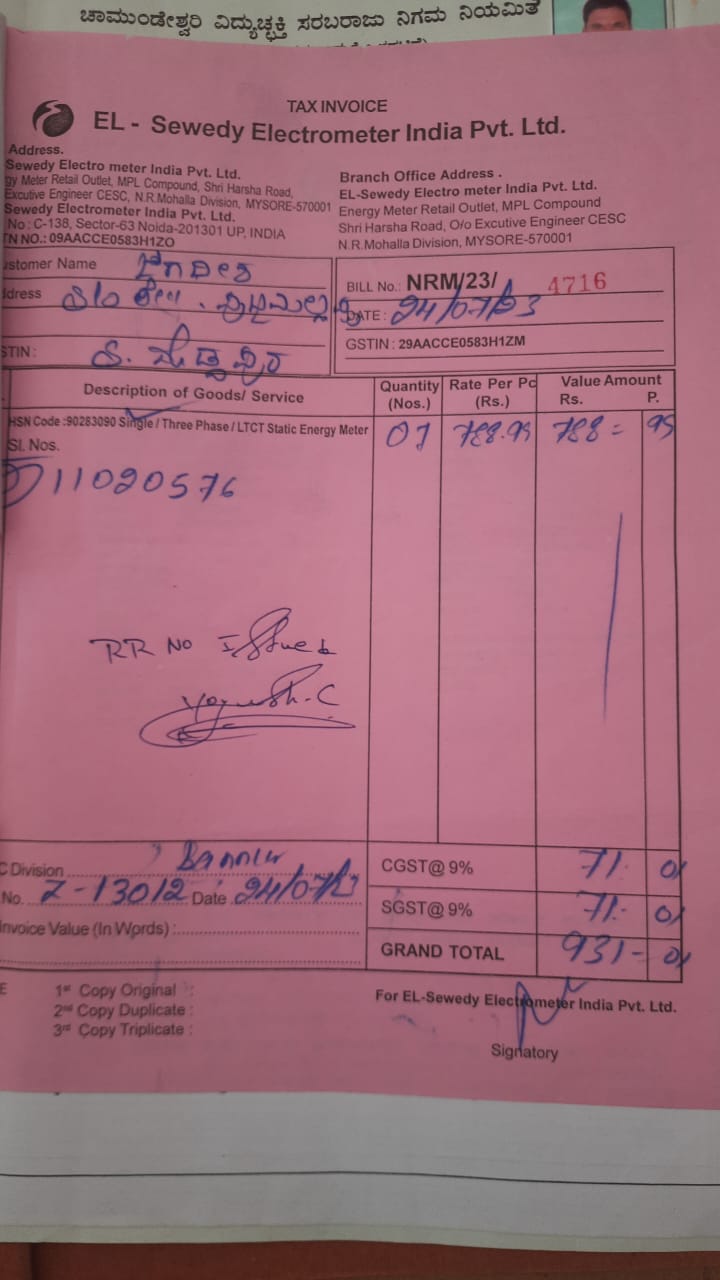 ಚಾಮುಂಡೇಶ್ವರಿ ವಿದ್ಯುಚ್ಛಕ್ತಿ ಸರಬರಾಜು ನಿಗಮ ನಿಯಮಿತ
TAX INVOICE
EL - Sewedy Electrometer India Pvt. Ltd.
Address.
Sewedy Electro meter India Pvt. Ltd.
gy Meter Retail Outlet, MPL Compound, Shri Harsha Road,
Excutive Engineer CESC, N.R.Mohalla Division, MYSORE-570001
Sewedy Electrometer India Pvt. Ltd.
No : C-138, Sector-63 Noida-201301 UP, INDIA
TN NO.: 09AACCE0583H1ZO
Branch Office Address .
EL-Sewedy Electro meter India Pvt. Ltd.
Energy Meter Retail Outlet, MPL Compound
Shri Harsha Road, O/o Excutive Engineer CESC
N.R.Mohalla Division, MYSORE-570001
ustomer Name
ddress
STIN :
BILL No.: NRM/23/ 4716
DATE : 24/07/23
GSTIN : 29AACCE0583H1ZM
Description of Goods/ Service Quantity (Nos.) Rate Per Pc (Rs.) Value Amount Rs. P.
HSN Code :90283090 Single / Three Phase / LTCT Static Energy Meter 01 788.95 788 = 95
Sl. Nos.
11020576
RR No Issued
Yogesh.C
C Division Bannur
No. Z-13012 Date 24/07/23
Invoice Value (In Words) :
CGST@ 9% 71. 01
SGST@ 9% 71.- 01
GRAND TOTAL 931- 01
E 1st Copy Original :
2nd Copy Duplicate :
3rd Copy Triplicate :
For EL-Sewedy Electrometer India Pvt. Ltd.
Signatory